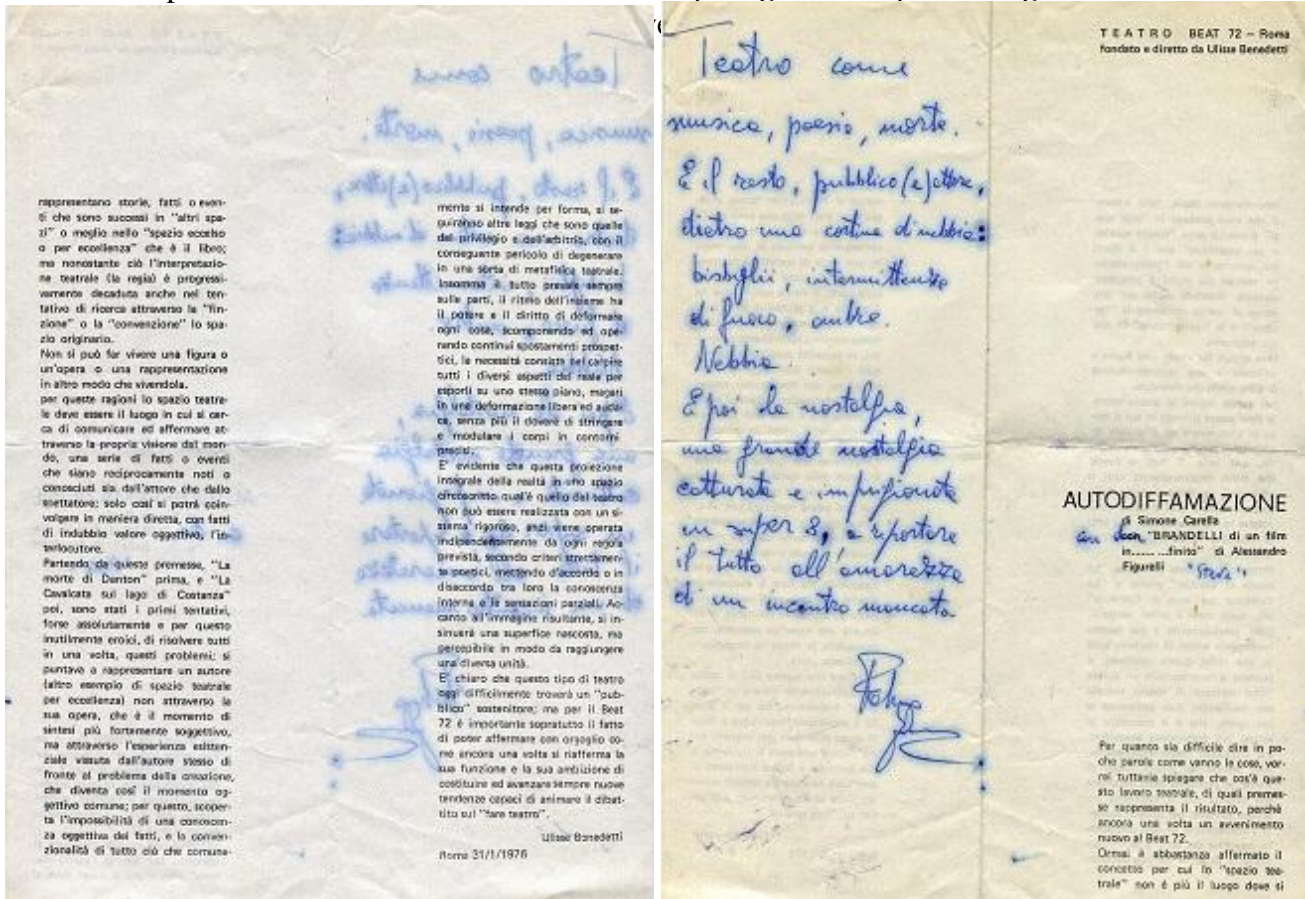 rappresentano storie, fatti o even-
ti che sono successi in "altri spa-
zi" o meglio nello "spazio eccelso
o per eccellenza" che è il libro;
ma nonostante ciò l'interpretazio-
ne teatrale (la regia) è progressi-
vamente decaduta anche nel ten-
tativo di ricerca attraverso la "fin-
zione" o la "convenzione" lo spa-
zio originario.
Non si può far vivere una figura o
un'opera o una rappresentazione
in altro modo che vivendola.
per queste ragioni lo spazio teatra-
le deve essere il luogo in cui si cer-
ca di comunicare ed affermare at-
traverso la propria visione del mon-
do, una serie di fatti o eventi
che siano reciprocamente noti o
conosciuti sia dall'attore che dallo
spettatore; solo così si potrà coin-
volgere in maniera diretta, con fatti
di indubbio valore oggettivo, l'in-
terlocutore.
Partendo da queste premesse, "La
morte di Danton" prima, e "La
Cavalcata sul lago di Costanza"
poi, sono stati i primi tentativi,
forse assolutamente e per questo
inutilmente eroici, di risolvere tutti
in una volta, questi problemi; si
puntava a rappresentare un autore
(altro esempio di spazio teatrale
per eccellenza) non attraverso la
sua opera, che è il momento di
sintesi più fortemente soggettivo,
ma attraverso l'esperienza esisten-
ziale vissuta dall'autore stesso di
fronte al problema della creazione,
che diventa così il momento og-
gettivo comune; per questo, scoper-
ta l'impossibilità di una conoscen-
za oggettiva dei fatti, e la conven-
zionalità di tutto ciò che comune-
mente si intende per forma, si se-
guiranno altre leggi che sono quelle
del privilegio e dell'arbitrio, con il
conseguente pericolo di degenerare
in una sorta di metafisica teatrale.
Insomma il tutto prevale sempre
sulle parti, il ritmo dell'insieme ha
il potere e il diritto di deformare
ogni cosa, scomponendo ed ope-
rando continui spostamenti prospet-
tici, la necessità consiste nel carpire
tutti i diversi aspetti del reale per
esporli su uno stesso piano, magari
in una deformazione libera ed auda-
ce, senza più il dovere di stringere
e modulare i corpi in contorni
precisi.
E' evidente che questa proiezione
integrale della realtà in uno spazio
circoscritto qual'è quello del teatro
non può essere realizzata con un si-
stema rigoroso, anzi viene operata
indipendentemente da ogni regola
prevista, secondo criteri strettamen-
te poetici, mettendo d'accordo o in
disaccordo tra loro la conoscenza
interna e le sensazioni parziali. Ac-
canto all'immagine risultante, si in-
sinuerà una superfice nascosta, ma
percepibile in modo da raggiungere
una diversa unità.
E' chiaro che questo tipo di teatro
oggi difficilmente troverà un "pub-
blico" sostenitore; ma per il Beat
72 è importante sopratutto il fatto
di poter affermare con orgoglio co-
me ancora una volta si riafferma la
sua funzione e la sua ambizione di
costituire ed avanzare sempre nuove
tendenze capaci di animare il dibat-
tito sul "fare teatro".
Ulisse Benedetti
Roma 31/1/1976
Teatro come
musica, poesia, morte.
E il resto, pubblico (e) attore,
dietro una cortina di nebbia:
bisbiglii, intermittenze
di fuoco, ombre.
Nebbia.
E poi la nostalgia,
una grande nostalgia
catturata e imprigionata
in super 8, a riportare
il tutto all'amarezza
di un incontro mancato
TEATRO BEAT 72 – Roma
fondato e diretto da Ulisse Benedetti
AUTODIFFAMAZIONE
di Simone Carella
con "BRANDELLI di un film
in.........finito" di Alessandro
Figurelli
Per quanto sia difficile dire in po-
che parole come vanno le cose, vor-
rei tuttavia spiegare che cos'è que-
sto lavoro teatrale, di quali premes-
se rappresenta il risultato, perchè
ancora una volta un avvenimento
nuovo al Beat 72.
Ormai è abbastanza affermato il
concetto per cui lo "spazio tea-
trale" non è più il luogo dove si